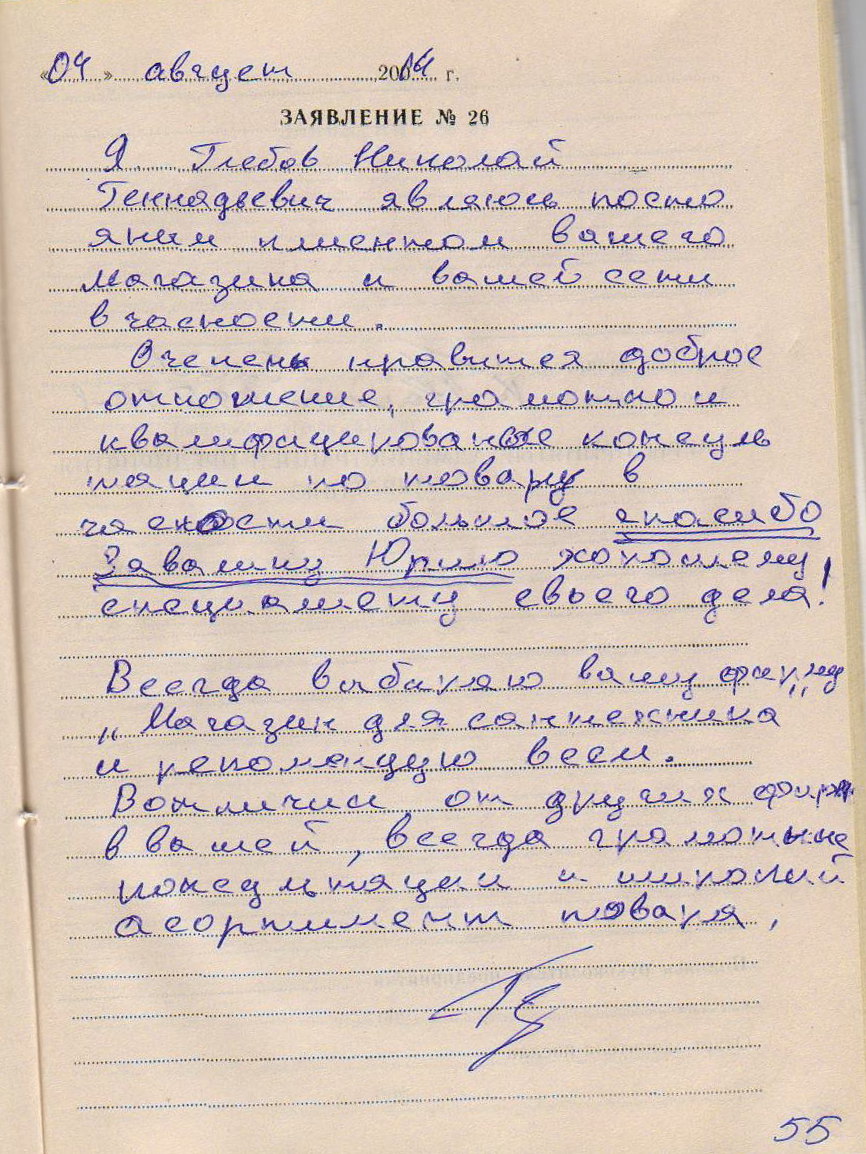 «04» август 2014 г.
ЗАЯВЛЕНИЕ № 26
Я Глебов Николай
Геннадьевич являюсь посто
яным клиентом вашего
магазина и вашей сети
в часности.
Очень нравится доброе
отношение, грамотно и
квалифицированые консуль
тации по товару в
часности большое спасибо
Юрию хорошему
специалисту своего дела!
Всегда выбираю вашу фирму
„Магазин для сантехника"
и рекомендую всем.
Вотличии от других фирм
в вашей, всегда грамотные
консультации и широкий
асортимент товара,
55